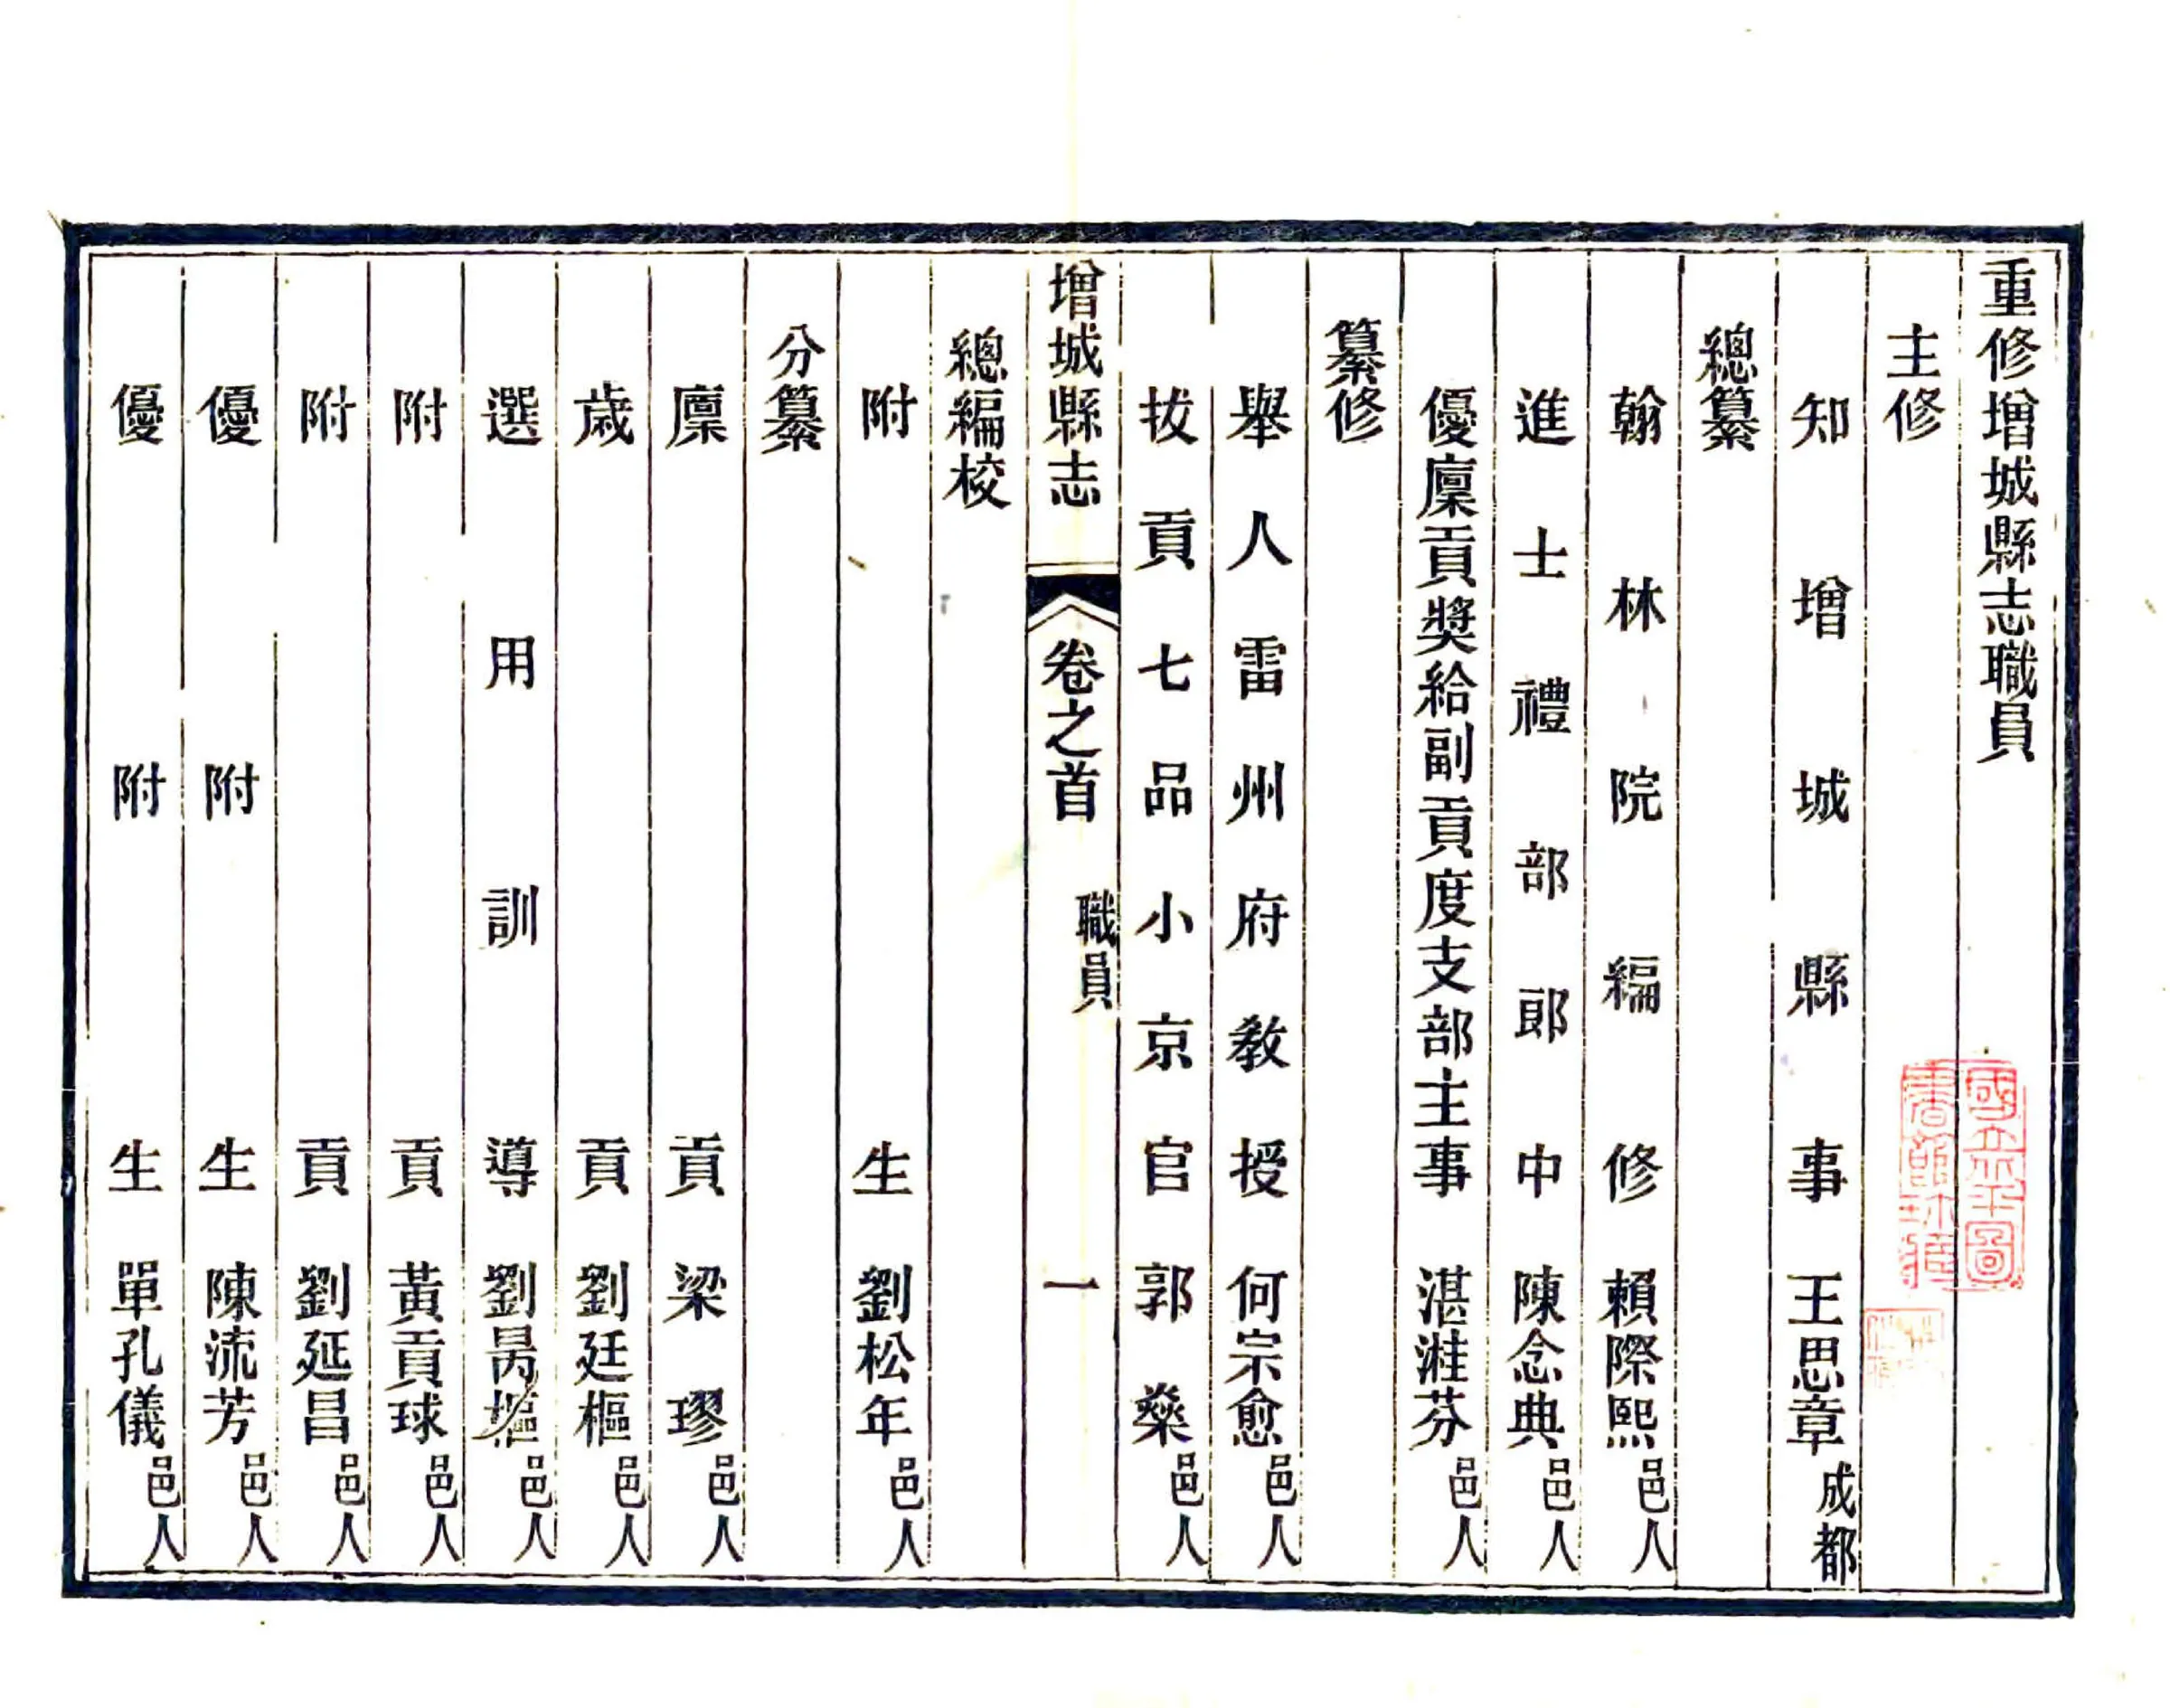 重修增城縣志職員
主修
知增城縣事 王思章 成都
總纂
翰林院編修 賴際熙 邑人
進士禮部郎中 陳念典 邑人
優廩貢獎給副貢度支部主事 湛溎芬 邑人
纂修
舉人雷州府教授 何宗愈 邑人
拔貢七品小京官 郭燊 邑人
增城縣志 卷之首 職員 一
總編校
附生 劉松年 邑人
分纂
廩貢 梁璆 邑人
歲貢 劉廷樞 邑人
選用訓導 劉樞 邑人
附貢 黃貢球 邑人
附貢 劉延昌 邑人
優附生 陳流芳 邑人
優附生 單孔儀 邑人